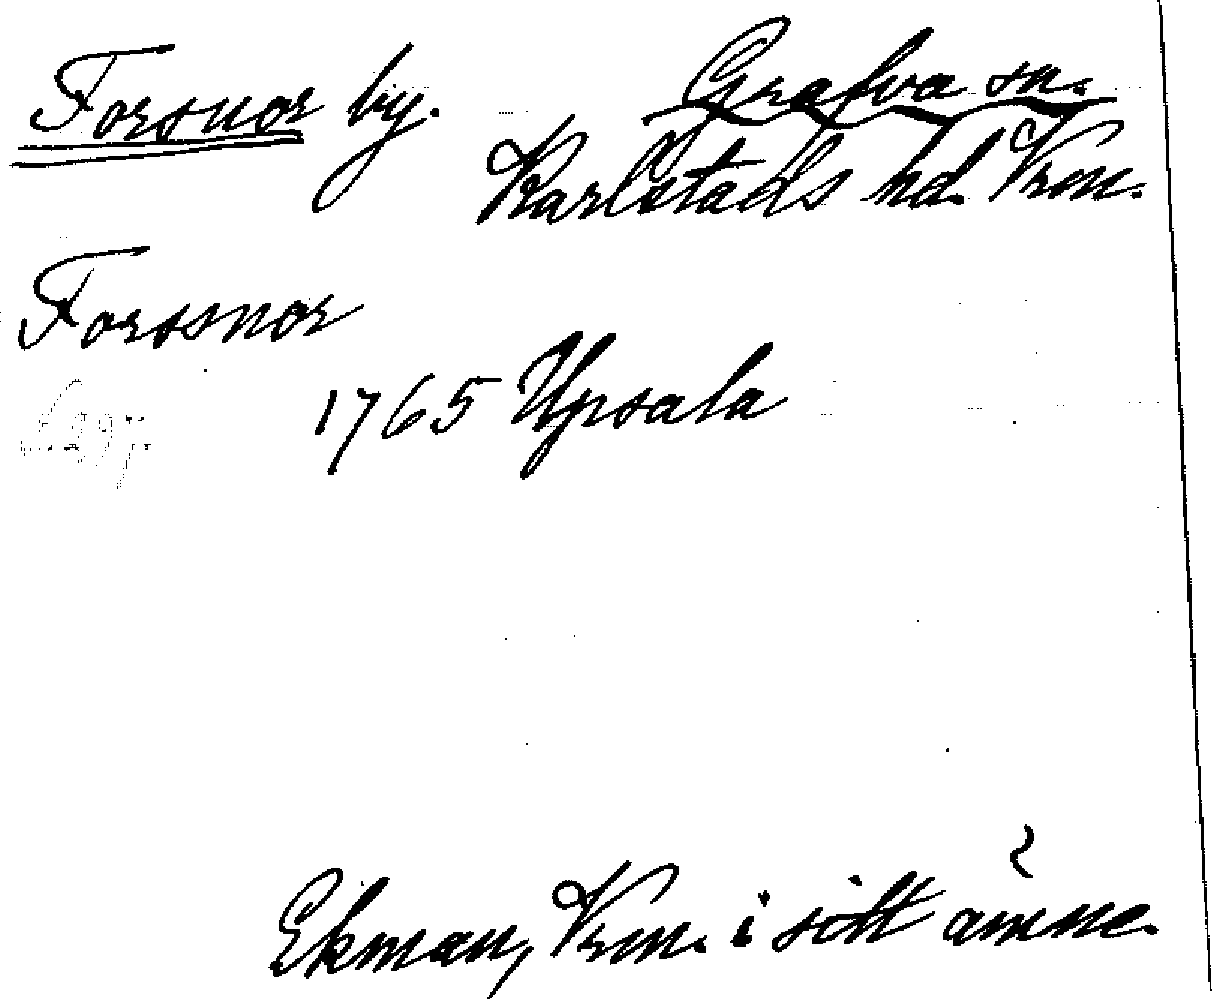 Forsnor by. Grafva sn.
Karlstads hd. Vrm.
Forssnor
1765 Upsala
Ekman, Vrm. i sitt ämne.